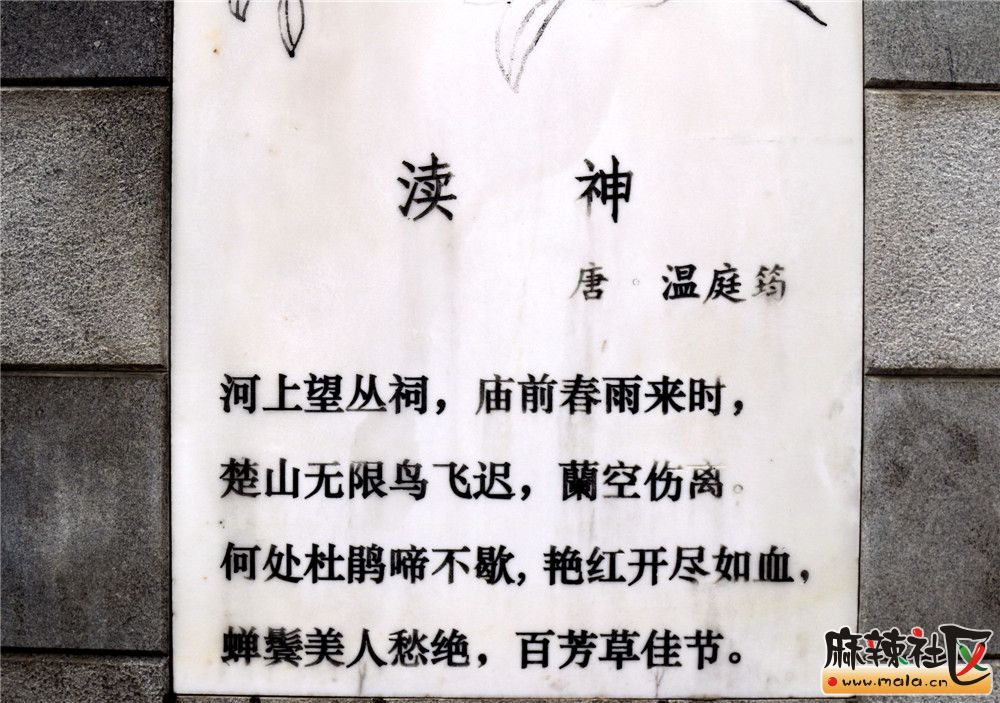 渎 神
唐 温庭筠
河上望丛祠，庙前春雨来时，
楚山无限鸟飞迟，蘭空伤离。
何处杜鹃啼不歇，艳红开尽如血，
蝉鬓美人愁绝，百芳草佳节。
麻辣社区
www.mala.cn